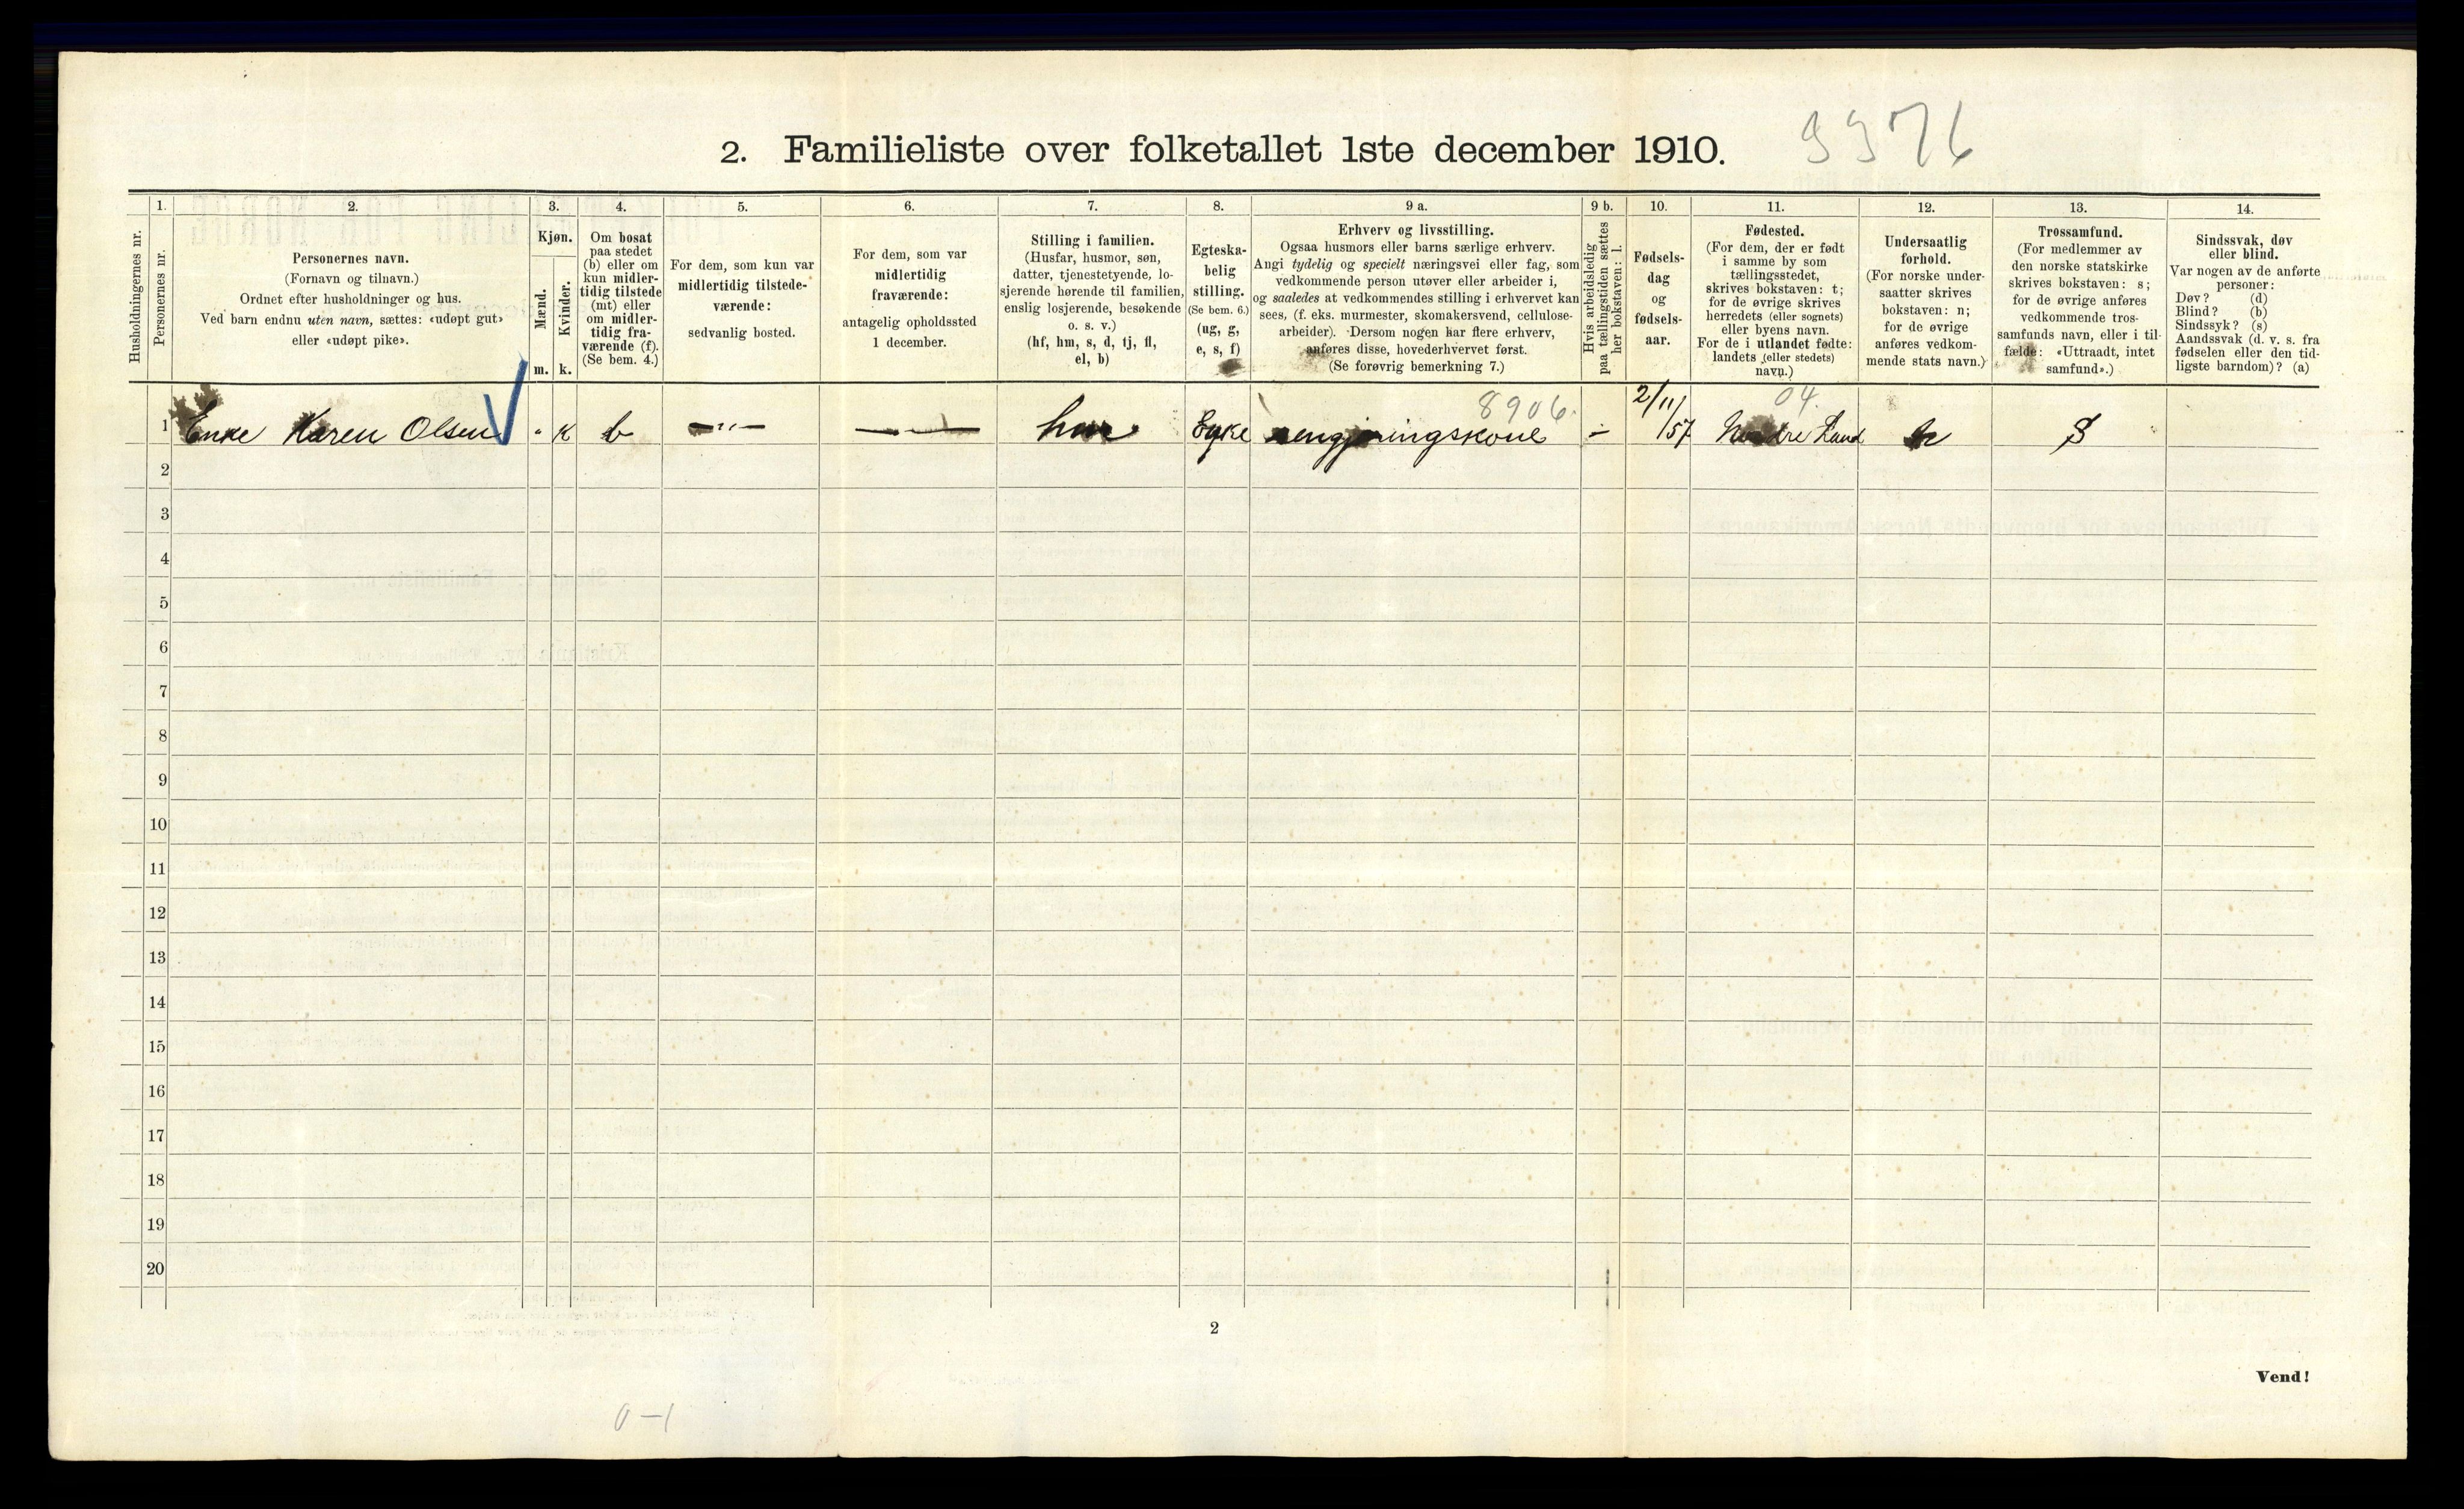 2. Familieliste over folketallet 1ste december 1910.
9976
Husholdningernes nr.
1.
Personernes nr.
2.
Personernes navn.
(Fornavn og tilnavn.)
Ordnet efter husholdninger og hus.
Ved barn endnu uten navn, sættes: «udøpt gut»
eller «udøpt pike».
3.
Kjøn.
Mænd.
Kvinder.
m. k.
4.
Om bosat
paa stedet
(b) eller om
kun midler-
tidig tilstede
(mt) eller
om midler-
tidig fra-
værende (f).
(Se bem. 4.)
5.
For dem, som kun var
midlertidig tilstede-
værende:
sedvanlig bosted.
6.
For dem, som var
midlertidig
fraværende:
antagelig opholdssted
1 december.
7.
Stilling i familien.
(Husfar, husmor, søn,
datter, tjenestetyende, lo-
sjerende hørende til familien,
enslig losjerende, besøkende
o. s. v.)
(hf, hm, s, d, tj, fl,
el, b)
8.
Egteska-
belig
stilling.
(Se bem. 6.)
(ug, g,
e, s, f)
9 a.
Erhverv og livsstilling.
Ogsaa husmors eller barns særlige erhverv.
Angi tydelig og specielt næringsvei eller fag, som
vedkommende person utøver eller arbeider i,
og saaledes at vedkommendes stilling i erhvervet kan
sees, (f. eks. murmester, skomakersvend, cellulose-
arbeider). Dersom nogen har flere erhverv,
anføres disse, hovederhvervet først.
(Se forøvrig bemerkning 7.)
9 b.
Hvis arbeidsledig
paa tællingstiden sættes
her bokstaven: l.
10.
Fødsels-
dag
og
fødsels-
aar.
11.
Fødested.
(For dem, der er født
i samme by som
tællingsstedet,
skrives bokstaven: t;
for de øvrige skrives
herredets (eller sognets)
eller byens navn.
For de i utlandet fødte:
landets (eller stedets)
navn.)
12.
Undersaatlig
forhold.
(For norske under-
saatter skrives
bokstaven: n;
for de øvrige
anføres vedkom-
mende stats navn.)
13.
Trossamfund.
(For medlemmer av
den norske statskirke
skrives bokstaven: s;
for de øvrige anføres
vedkommende tros-
samfunds navn, eller i til-
fælde: «Uttraadt, intet
samfund».)
14.
Sindssvak, døv
eller blind.
Var nogen av de anførte
personer:
Døv? (d)
Blind? (b)
Sindssyk? (s)
Aandssvak (d. v. s. fra
fødselen eller den tid-
ligste barndom)? (a)
8906. 2/11 04
1 Enke Karen Olsen k b —"— — — Enke rengjøringskone — /57 Nordre Land n S
2
3
4
5
6
7
8
9
10
11
12
13
14
15
16
17
18
19
20
2
Vend!
0-1